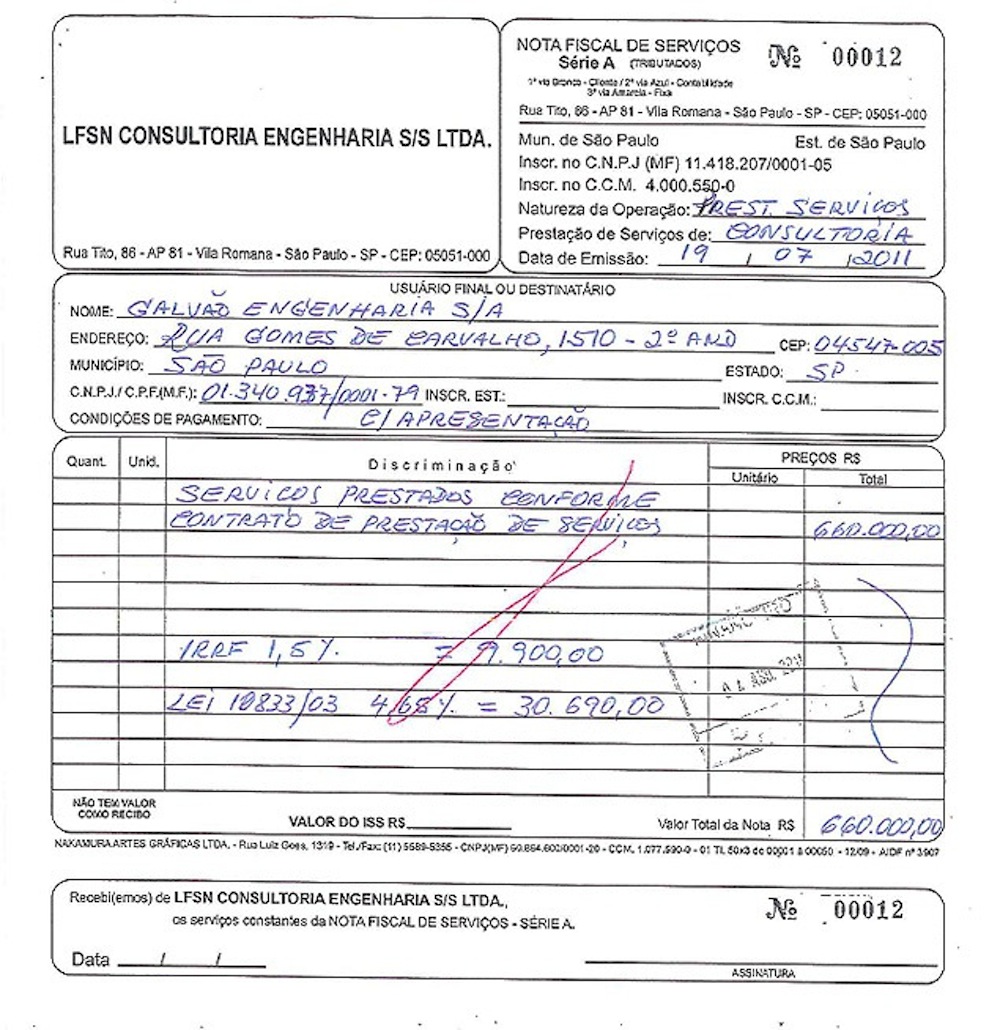 LFSN CONSULTORIA ENGENHARIA S/S LTDA.
Rua Tito, 86 - AP 81 - Vila Romana - São Paulo - SP - CEP: 05051-000
NOTA FISCAL DE SERVIÇOS
Série A (TRIBUTADOS)
Nº 00012
1ª via Branca - Cliente / 2ª via Azul - Contabilidade
3ª via Amarela - Fixa
Rua Tito, 86 - AP 81 - Vila Romana - São Paulo - SP - CEP: 05051-000
Mun. de São Paulo Est. de São Paulo
Inscr. no C.N.P.J (MF) 11.418.207/0001-05
Inscr. no C.C.M. 4.000.550-0
Natureza da Operação: PREST. SERVIÇOS
Prestação de Serviços de: CONSULTORIA
Data de Emissão: 19 / 07 / 2011
USUÁRIO FINAL OU DESTINATÁRIO
NOME: GALVÃO ENGENHARIA S/A
ENDEREÇO: RUA GOMES DE CARVALHO, 1510 - 2º AND CEP: 04547-005
MUNICÍPIO: SÃO PAULO ESTADO: SP.
C.N.P.J./ C.P.F.(M.F.): 01.340.937/0001-79 INSCR. EST.: INSCR. C.C.M.:
CONDIÇÕES DE PAGAMENTO: C/ APRESENTAÇÃO
Quant. Unid. Discriminação PREÇOS R$
Unitário Total
SERVIÇOS PRESTADOS CONFORME
CONTRATO DE PRESTAÇÃO DE SERVIÇOS 660.000,00
IRRF 1,5 %. = 9.900,00
LEI 10833/03 4,65 %. = 30.690,00
NÃO TEM VALOR
COMO RECIBO
VALOR DO ISS R$
Valor Total da Nota R$ 660.000,00
NAKAMURA ARTES GRÁFICAS LTDA. - Rua Luiz Goes, 1319 - Tel./Fax: (11) 5589-5355 - CNPJ(MF) 60.884.600/0001-20 - CCM. 1.077.590-9 - 01 Tl. 50x3 de 00001 à 00050 - 12/09 - AIDF nº 3907
Recebi(emos) de LFSN CONSULTORIA ENGENHARIA S/S LTDA.,
os serviços constantes da NOTA FISCAL DE SERVIÇOS - SÉRIE A.
Nº 00012
Data / /
ASSINATURA